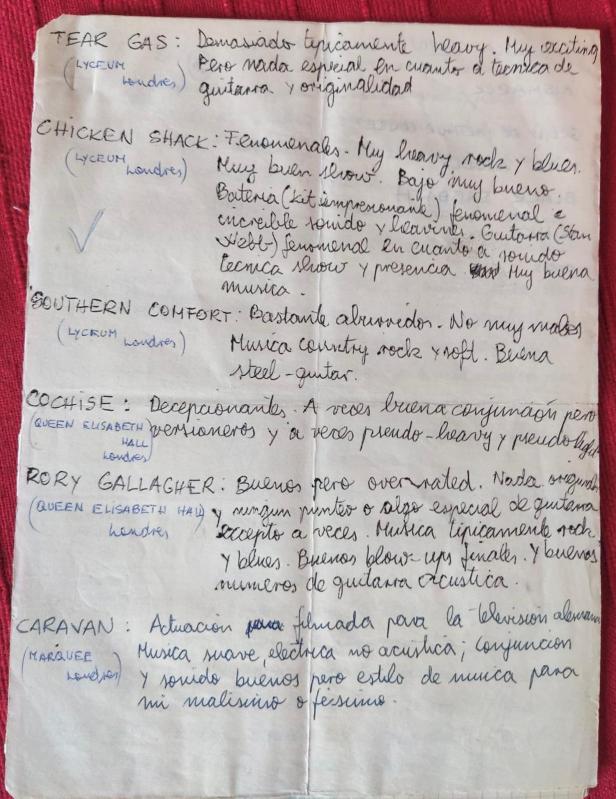 TEAR GAS: Demasiado tipicamente heavy. Muy exciting
(LYCEUM Londres) Pero nada especial en cuanto a tecnica de
guitarra y originalidad
CHICKEN SHACK: Fenomenales. Muy heavy, rock y blues.
(LYCEUM Londres) Muy buen show. Bajo muy bueno.
Bateria (kit impresionante) fenomenal e
increible sonido y heaviness. Guitarra (Stan
Webb) fenomenal en cuanto a sonido
tecnica show y presencia Muy buena
musica.
SOUTHERN COMFORT: Bastante aburridos. No muy malos
(LYCEUM Londres) Musica country rock y soft. Buena
steel-guitar.
COCHISE: Decepcionantes. A veces buena conjuncion pero
(QUEEN ELISABETH HALL Londres) versioneros y a veces pseudo-heavy y pseudo-light
RORY GALLAGHER: Buenos pero overrated. Nada original
(QUEEN ELISABETH HALL Londres) y ningun punteo o algo especial de guitarra
excepto a veces. Musica tipicamente rock
y blues. Buenos blow-ups finales. Y buenos
numeros de guitarra acustica.
CARAVAN: Actuacion filmada para la television alemana
(MARQUEE Londres) Musica suave, electrica no acustica; Conjuncion
y sonido buenos pero estilo de musica para
mi malisimo o feisimo.